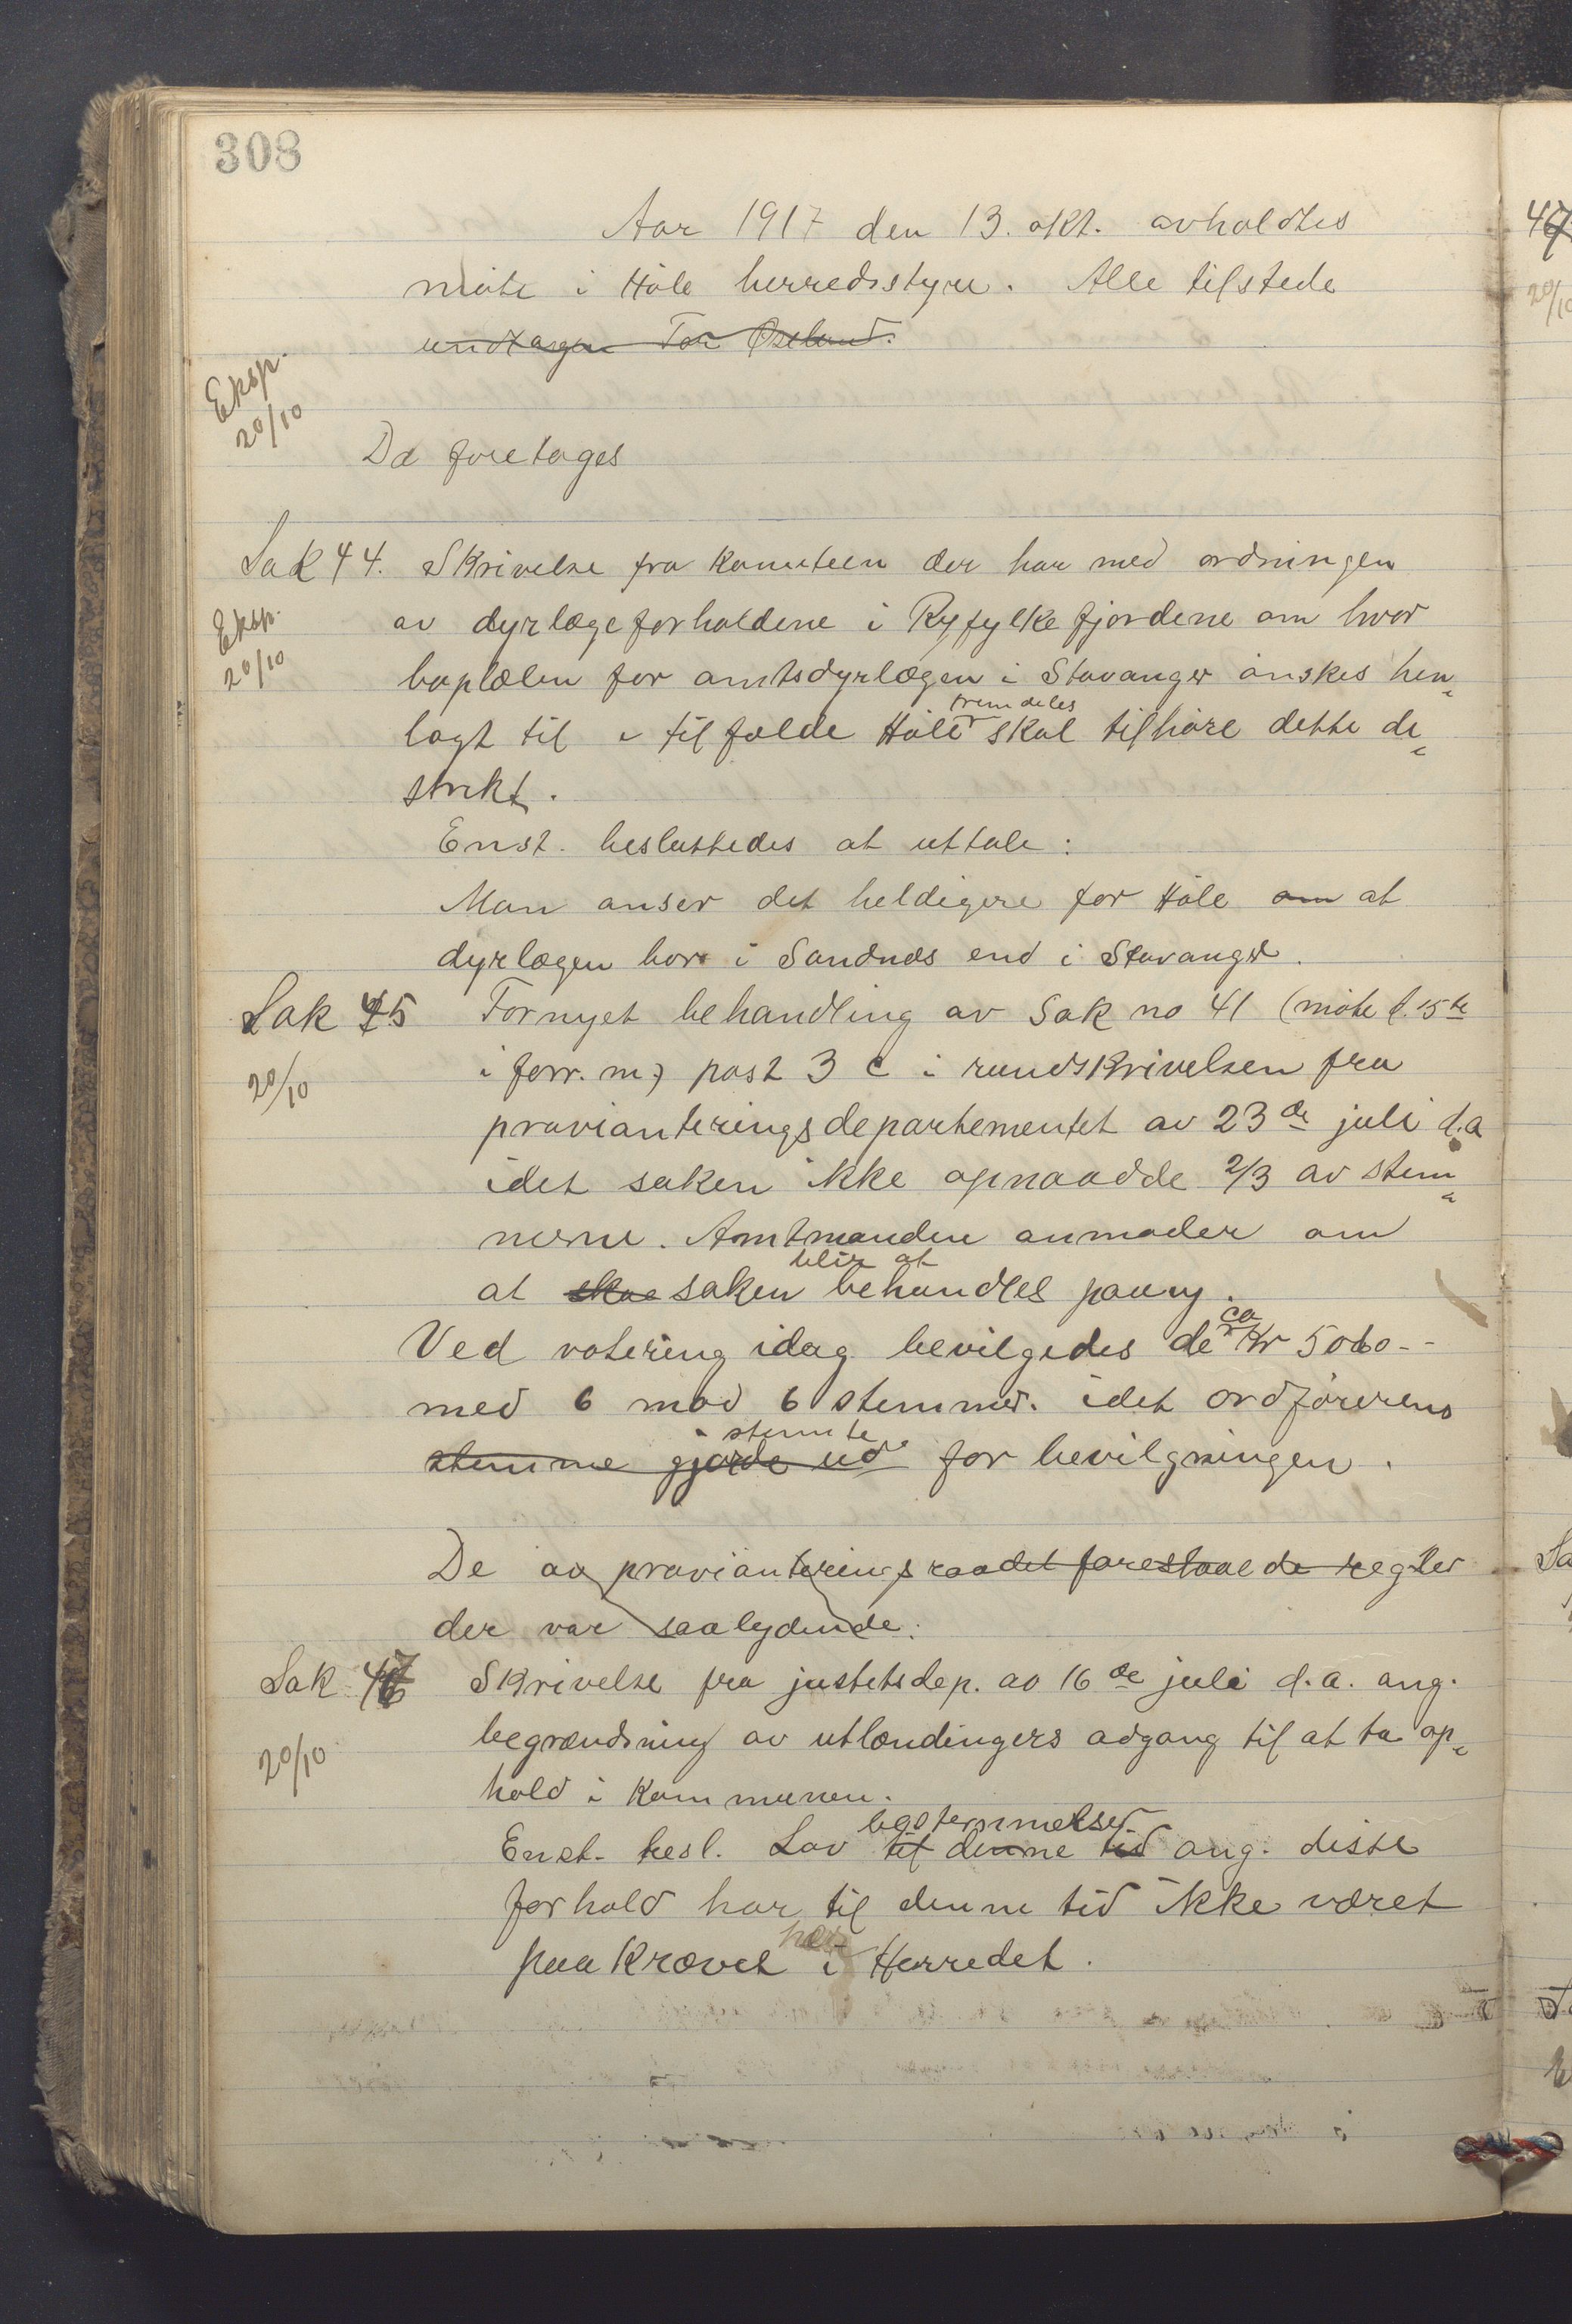 308
Aar 1917 den 13. okt. avholdtes
møte i Høle herredsstyre. Alle tilstede
undtagen Tor Øseland.
Eksp.
20/10
Da foretoges
Sak 44. Skrivelse fra komiteen der har med ordningen
Eksp.
20/10
av dyrlægeforholdene i Ryfylkefjordene om hvor
bopælen for amtsdyrlægen i Stavanger ønskes hen-
fremdeles
lagt til i tilfælde Høle skal tilhøre dette de-
strikt.
Enst. besluttedes at uttale:
Man anser det heldigere for Høle om at
dyrlægen bor i Sandnes end i Stavanger.
Sak 45 Fornyet behandling av Sak no 41 (møte d. 15de
20/10
i forr. m.) post 3 c i rundskrivelsen fra
provianteringsdepartementet av 23de juli d.a
idet saken ikke opnaadde 2/3 av stem-
merne. Amtmanden anmoder om
blir at
at skae saken behandles paany.
ca
Ved votering idag bevilgedes de Kr 5060--
med 6 mod 6 stemmer. idet ordførerens
stemte
stemme gjorde ud for bevilgningen.
De av provianteringsraadet forestaaede regler
der var saalydende:
Sak 47 Skrivelse fra justetsdep. av 16de juli d.a. ang.
20/10
begrændsning av utlændingers adgang til at ta op-
hold i kommunen.
bestemmelser
Enst. besl. Lov til denne tid ang. disse
forhold har til denne tid ikke været
her
paakrævet i Herredet.
47
20/10
Sa